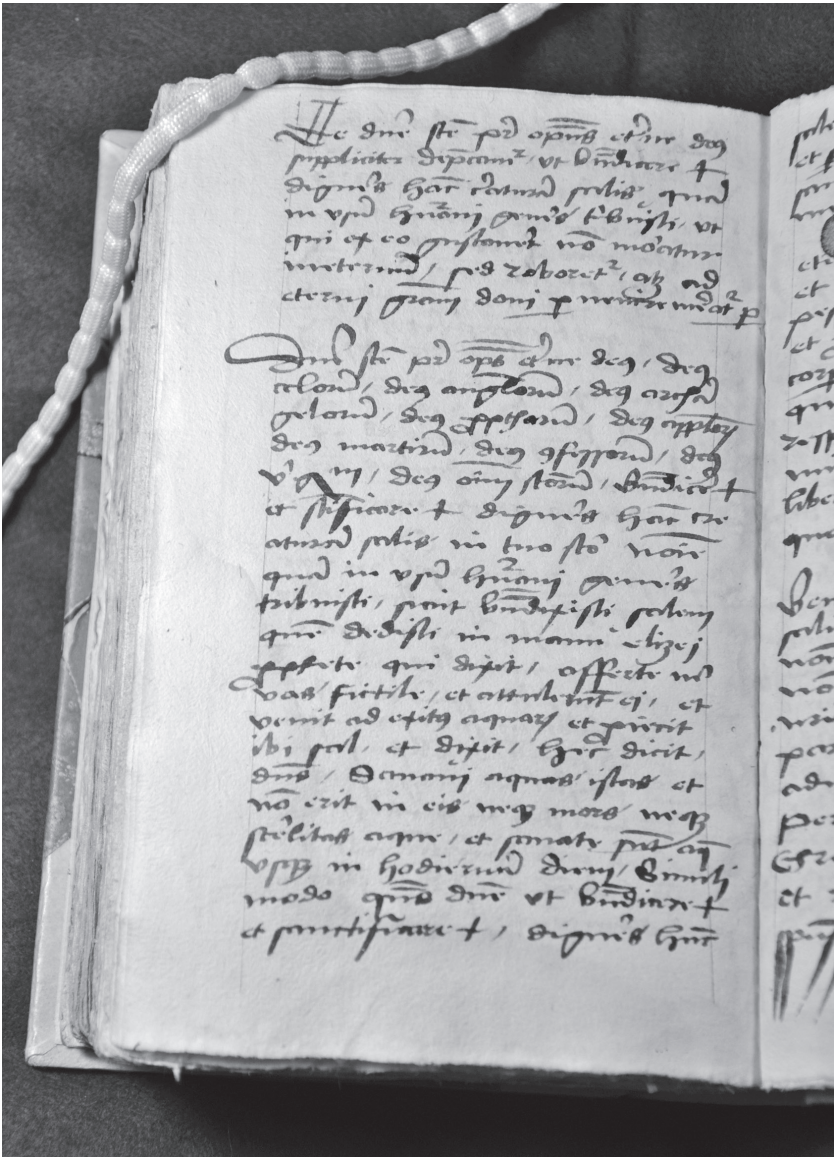 Te dne ste pr opns et'ne deq
suppliciter depcam², ut bndicere +
digneris hac c'atura salis, qua
in usu humani gen'is t'buisti, ut
qui ex eo gustauerit no moriatur
in eternu, sed roboret², atq ad
eterni doni p uenire
Dne ste pr ops et'ne deq, deq
celoru, deq angloru, deq archa
geloru, deq pphtaru, deq applor
deq martiru, deq ɔfessoru, deq
v'ginu, deq oim storu, bndice' +
et stificare + digneris hac cre
atura salis in tuo sto noie
qua in usu humani gen'is
tribuisti, sicut bndixisti salem
que dedisti in manu elizej
pphete qui dixit, afferte m'
vas fictile, et attulerut ei, et
uenit ad exitu aquar et piecit
ibi sal, et dixit, hec dicit,
dns, Sanaui aquas istas et
no erit in eis neq mors neq
st'ilitas aque, et sanate sut aq
usq in hodiernu diem, Simili
modo qus dne ut bndicere +
et sanctificare +, digneris hac